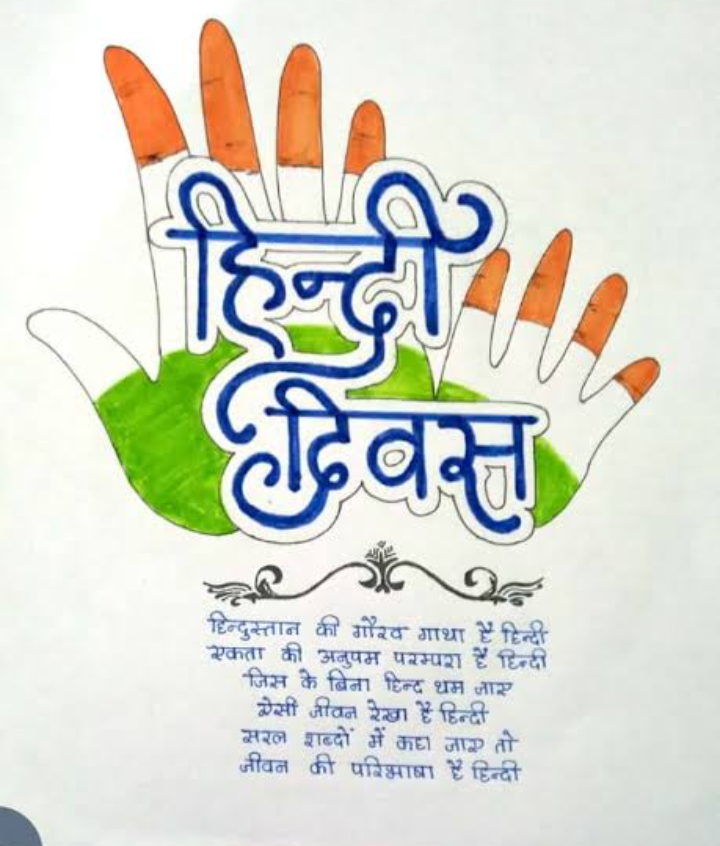 हिन्दी
दिवस
हिन्दुस्तान की गौरव गाथा है हिन्दी
एकता की अनुपम परम्परा है हिन्दी
जिस के बिना हिन्द थम जाए
ऐसी जीवन रेखा है हिन्दी
सरल शब्दों में कहा जाए तो
जीवन की परिभाषा है हिन्दी